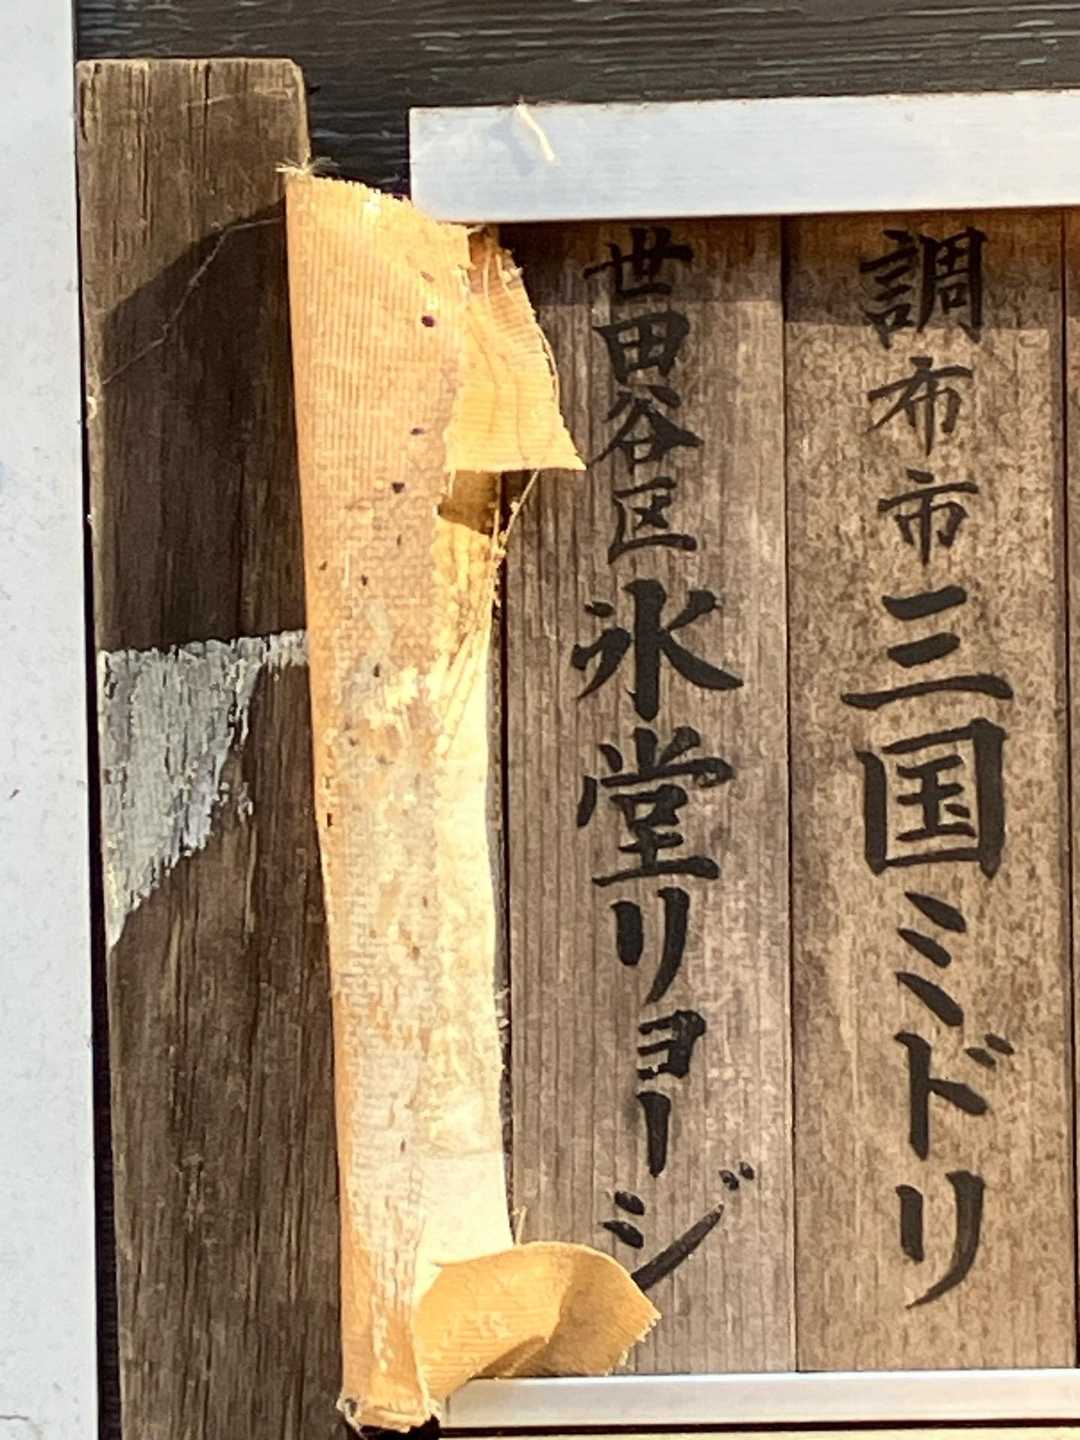 調布市三国ミドリ
世田谷区氷堂リョージ